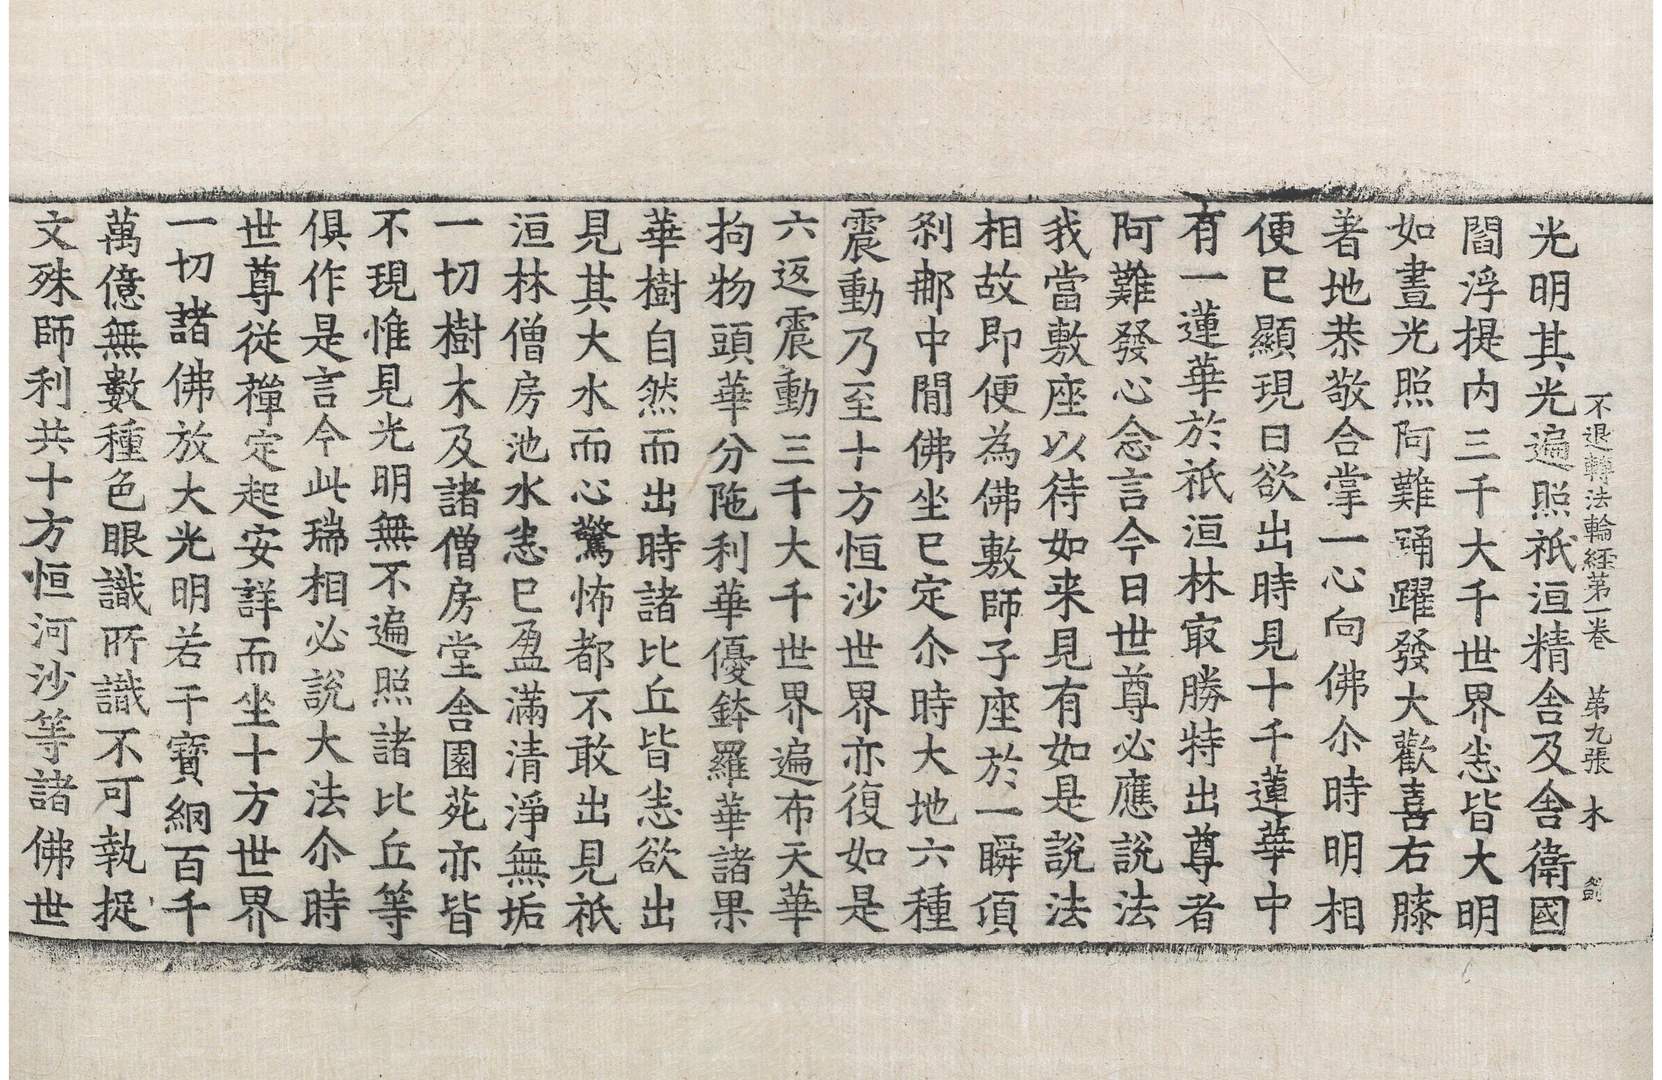 不退轉法輪経第一巻 第九張 木
光明其光遍照祇洹精舍及舍衛國
閻浮提内三千大千世界悉皆大明
如晝光照阿難踊躍發大歡喜右膝
著地恭敬合掌一心向佛尒時明相
便已顯現日欲出時見十千蓮華中
有一蓮華於祇洹林㝡勝特出尊者
阿難發心念言今日世尊必應說法
我當敷座以待如来見有如是說法
相故即便為佛敷師子座於一瞬頃
刹那中間佛坐已定尒時大地六種
震動乃至十方恒沙世界亦復如是
六返震動三千大千世界遍布天華
拘物頭華分陁利華優鉢羅華諸果
華樹自然而出時諸比丘皆悉欲出
見其大水而心驚怖都不敢出見祇
洹林僧房池水悉已盈滿清淨無垢
一切樹木及諸僧房堂舍園苑亦皆
不現惟見光明無不遍照諸比丘等
俱作是言今此瑞相必說大法尒時
世尊從禪定起安詳而坐十方世界
一切諸佛放大光明若干寶網百千
萬億無數種色眼識所識不可執捉
文殊師利共十方恒河沙等諸佛世